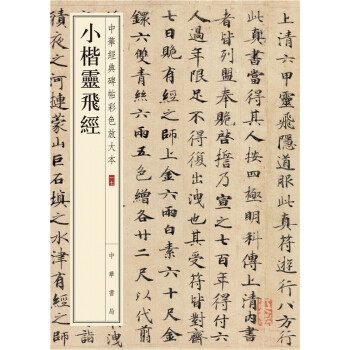 中華經典碑帖彩色放大本
小楷靈飛經
中華書局
上清六甲靈飛隱道服此真符遊行八方行
此真書當得其人按四極明科傳上清內書
者皆列盟奉脆啓誓乃宣之七百年得付六
人過年限足不得復出洩也其受符皆對齋
七日脆有經之師上金六兩白素六十尺金
鐶六雙青絲六兩五色繒各廿二尺以代翦
積夜之河摙蒙山巨石填之水津有經之師